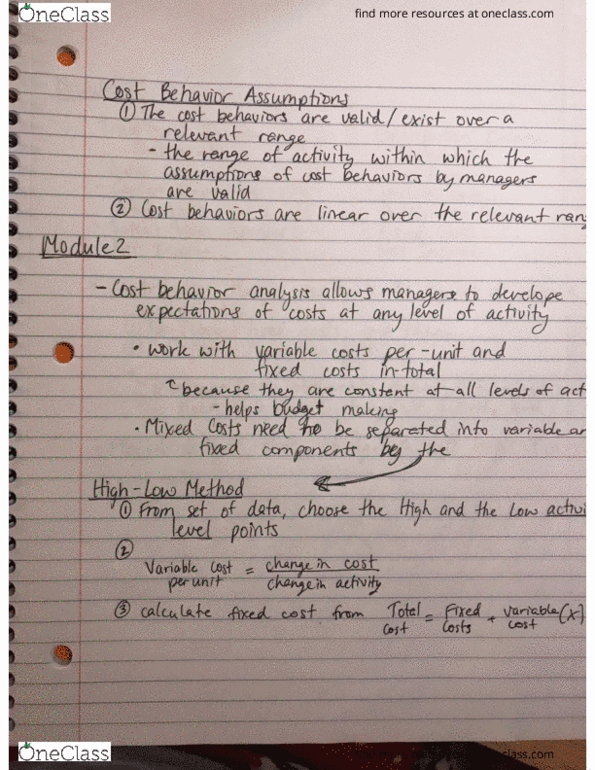 OneClass
find more resources at oneclass.com
Cost Behavior Assumptions
① The cost behaviors are valid/exist over a
relevant range
- the range of activity within which the
assumptions of cost behaviors by managers
are valid
② Cost behaviors are linear over the relevant ran
Module 2
- Cost behavior analysis allows managers to develope
expectations of costs at any level of activity
• work with variable costs per-unit and
fixed costs in total
because they are constant at all levels of act
- helps budget making
• Mixed Costs need to be separated into variable an
fixed components by the
High-Low Method
① From set of data, choose the High and the Low activi
level points
②
Variable cost = change in cost
per unit change in activity
③ calculate fixed cost from Total = Fixed + variable (x)
cost costs cost
OneClass
find more resources at oneclass.com